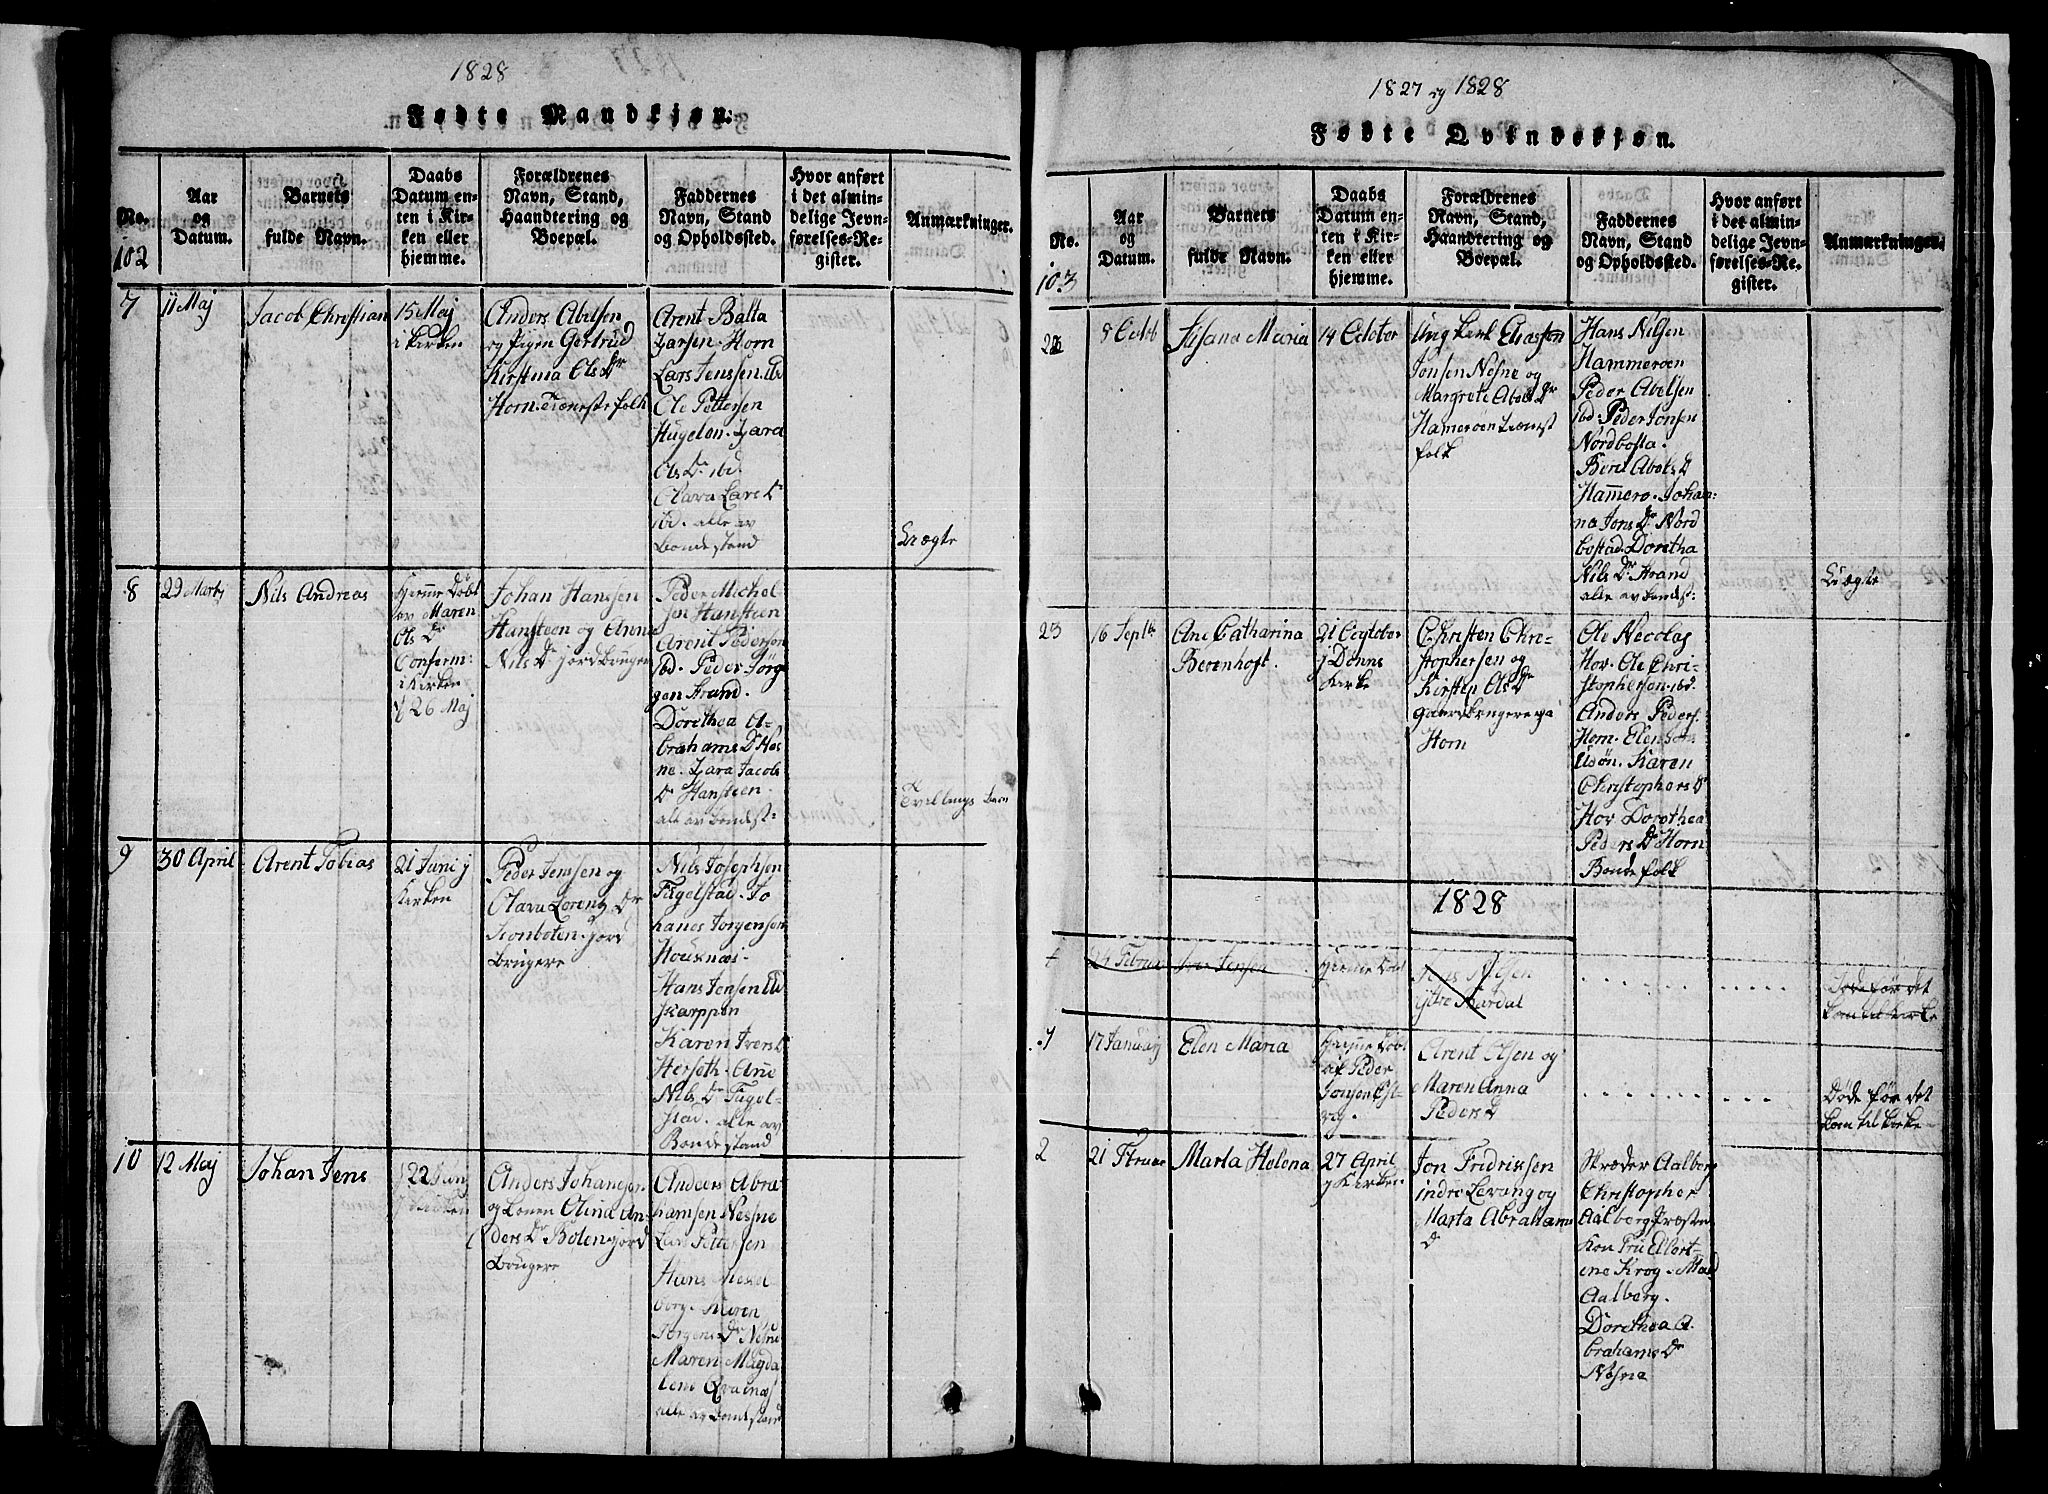 1828
Fødte Mandkjøn.
No.
102
Aar
og
Datum.
Barnets
fulde Navn.
Daabs
Datum en-
ten i Kir-
ken eller
hjemme.
Forældrenes
Navn, Stand,
Haandtering og
Boepæl.
Faddernes
Navn, Stand
og Opholdssted.
Hvor anført
i det almin-
delige Jevn-
førelses-Re-
gister.
Anmærkninger.
7
11 Maj
Jacob Christian
15 Maj
i Kirken
Anders Abelsen
og Pigen Gertrud
Kirstina Ols Dr
Horn. Tienestefolk
Arent Balta
Larsen Horn
Lars Jenssen ibd
Ole Pettersen
Hugelon. Zara
Ols Dr ibd.
Clara Lars D
ibd. alle av
bondestand
Uægte
8
29 Marty
Nils Andreas
Hjemme Döbt
av Maren
Ols Dr
Conferm:
i Kirken
d 26 Maj
Johan Hanssen
Hansteen og Anna
Nils Dr jordbruger
Peder Michel
sen Hansteen
Arent Pederson
ibd. Peder Jörg
gen Strand.
Dorethea A-
brahams D Nes
ne. Zara Jacobs
Dr Hansteen.
alle av bondest:
Tvillings barn
9
30 April
Arent Tobias
21 Juni j
Kirken
Peder Jenssen og
Clara Lorentz Dr
jord
brugere
Nils Josephsen
Fugelstad. Jo
hanes Jorgensen
Housnæs.
Hans Jensen
Skarppen
Karen Ivers D
Herseth. Ane
Nils Dr Fugel-
stad. alle av
Bondestand
10
12 Maj
Johan Jens
22 Junj
j Kirken
Anders Johansen
og konen Olina An-
ders Dr Bolen jord
brugere
Anders Abra
hamsen Nesne
Lars Pettersen
Hans
borg. Maren
Jorgens Dr Nesne
Maren Magda
lene Qvalnæs
alle av bondestand
1827 og 1828
Fødte Qvindekjøn.
No.
103
Aar
og
Datum.
Barnets
fulde Navn.
Daabs
Datum en-
ten i Kir-
ken eller
hjemme.
Forældrenes
Navn, Stand,
Haandtering og
Boepæl.
Faddernes
Navn, Stand
og Opholdssted.
Hvor anført
i det almin-
delige Jevn-
førelses-Re-
gister.
Anmærkninger.
22
8 Octob
Susana Maria
14 October
Ung karl Elias
Jonsen Nesne og
Margrete Abels Dr
Hamerøen Tienest
folk
Hans Nilsen
Hammerøen
Peder Abelsen
ibd: Peder Jonsen
Nordbosta.
Beret Abels D
Hammerø. Johan-
na Jons Dr Nord
bostad. Doretha
Nils Dr Strand
alle av bondest:
Uægte
23
16 Septbr
Ane Catharina
Berenhoft.
21 Octobor
j Dønnes
Kirke
Christen Chri-
stophersen og
Kirsten Ols Dr
gaardbrugere paa
Horn
Ole Necolas
Hov. Ole Chri-
stophersen ibd.
Anders Peders:
Horn. Elen
Karen
Christophers D
Hov Dorothea
Peders Dr Horn
Bondefolk
1828
Februar
Jens Jensen
Hjemme Döbt
Jens Nilsen
ydre
Døde før det
kom til kirke
1
17 January
Elen Maria
Hjemme Döbt
af Peder
Jonsen
Arent Olsen og
Maren Anna
Peders D
Døde før det
kom til kirke
2
21 Februar
Marta Helena
27 April
j Kirken
Jon Fridrissen
indre Levang og
Marta Abrahams
Dr
Skræder Aalberg
Christopher
Aalberg. Præste
Kon Fru Ellert
ine Krog. Mad
Aalberg.
Dorethea A
brahams Dr
Nesne